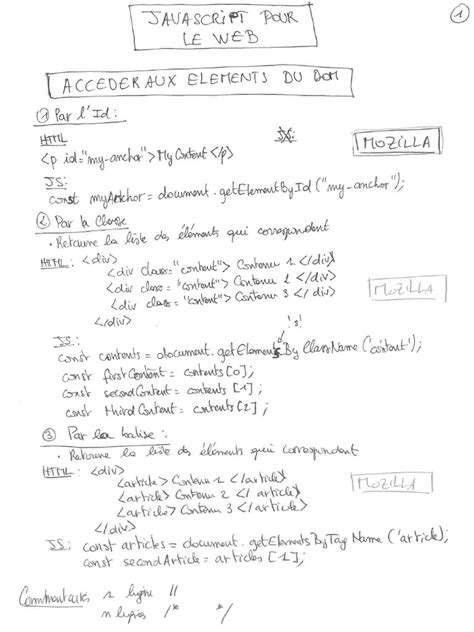 JAVASCRIPT POUR
LE WEB
1
ACCEDER AUX ELEMENTS DU DOM
① Par l'Id :
HTML
<p id="my-anchor">My Content </p>
MOZILLA
JS:
const myAnchor = document.getElementById("my-anchor");
② Par la Classe
• Retourne la liste des éléments qui correspondent
HTML : <div>
<div class="content"> Contenu 1 </div>
<div class="content"> Contenu 2 </div>
<div class="content"> Contenu 3 </div>
</div>
MOZILLA
's'!
JS:
const contents = document.getElementsByClassName('content');
const firstContent = contents[0];
const secondContent = contents[1];
const thirdContent = contents[2];
③ Par la balise :
• Retourne la liste des éléments qui correspondent
HTML : <div>
<article> Contenu 1 </article>
<article> Contenu 2 </article>
<article> Contenu 3 </article>
</div>
MOZILLA
JS: const articles = document.getElementsByTagName('article);
const secondArticle = articles[1];
Commentaires 1 ligne //
n lignes /* */